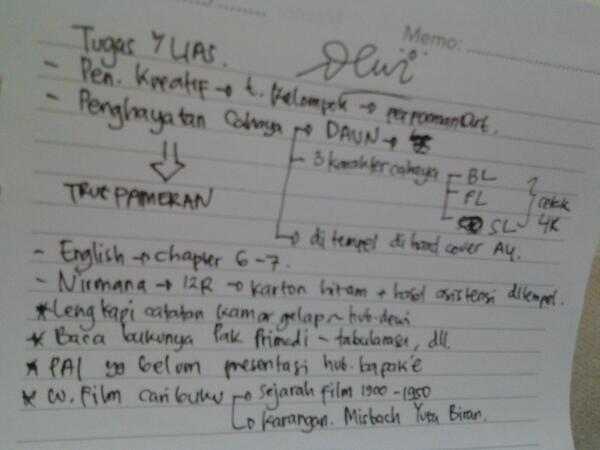 Memo:
Tugas Y UAS.
Dewi
- Pen. Kreatif → t. kelompok → performanArt.
- Penghayatan Cahaya → DAUN →
- 3 karakter cahaya - BL
- FL
SL
cetak
4R
TRUE PAMERAN
→ di tempel di hard cover A4.
- English → chapter 6-7.
- Nirmana → 12R → karton hitam + hasil asistensi ditempel.
* Lengkapi catatan kamar gelap ~ hub. dewi
* Baca bukunya Pak Primadi - tabularasi, dll.
* PAI yg belum presentasi hub. bapak'e
* W. Film cari buku → sejarah film 1900-1950
→ karangan. Misbach Yusa Biran.